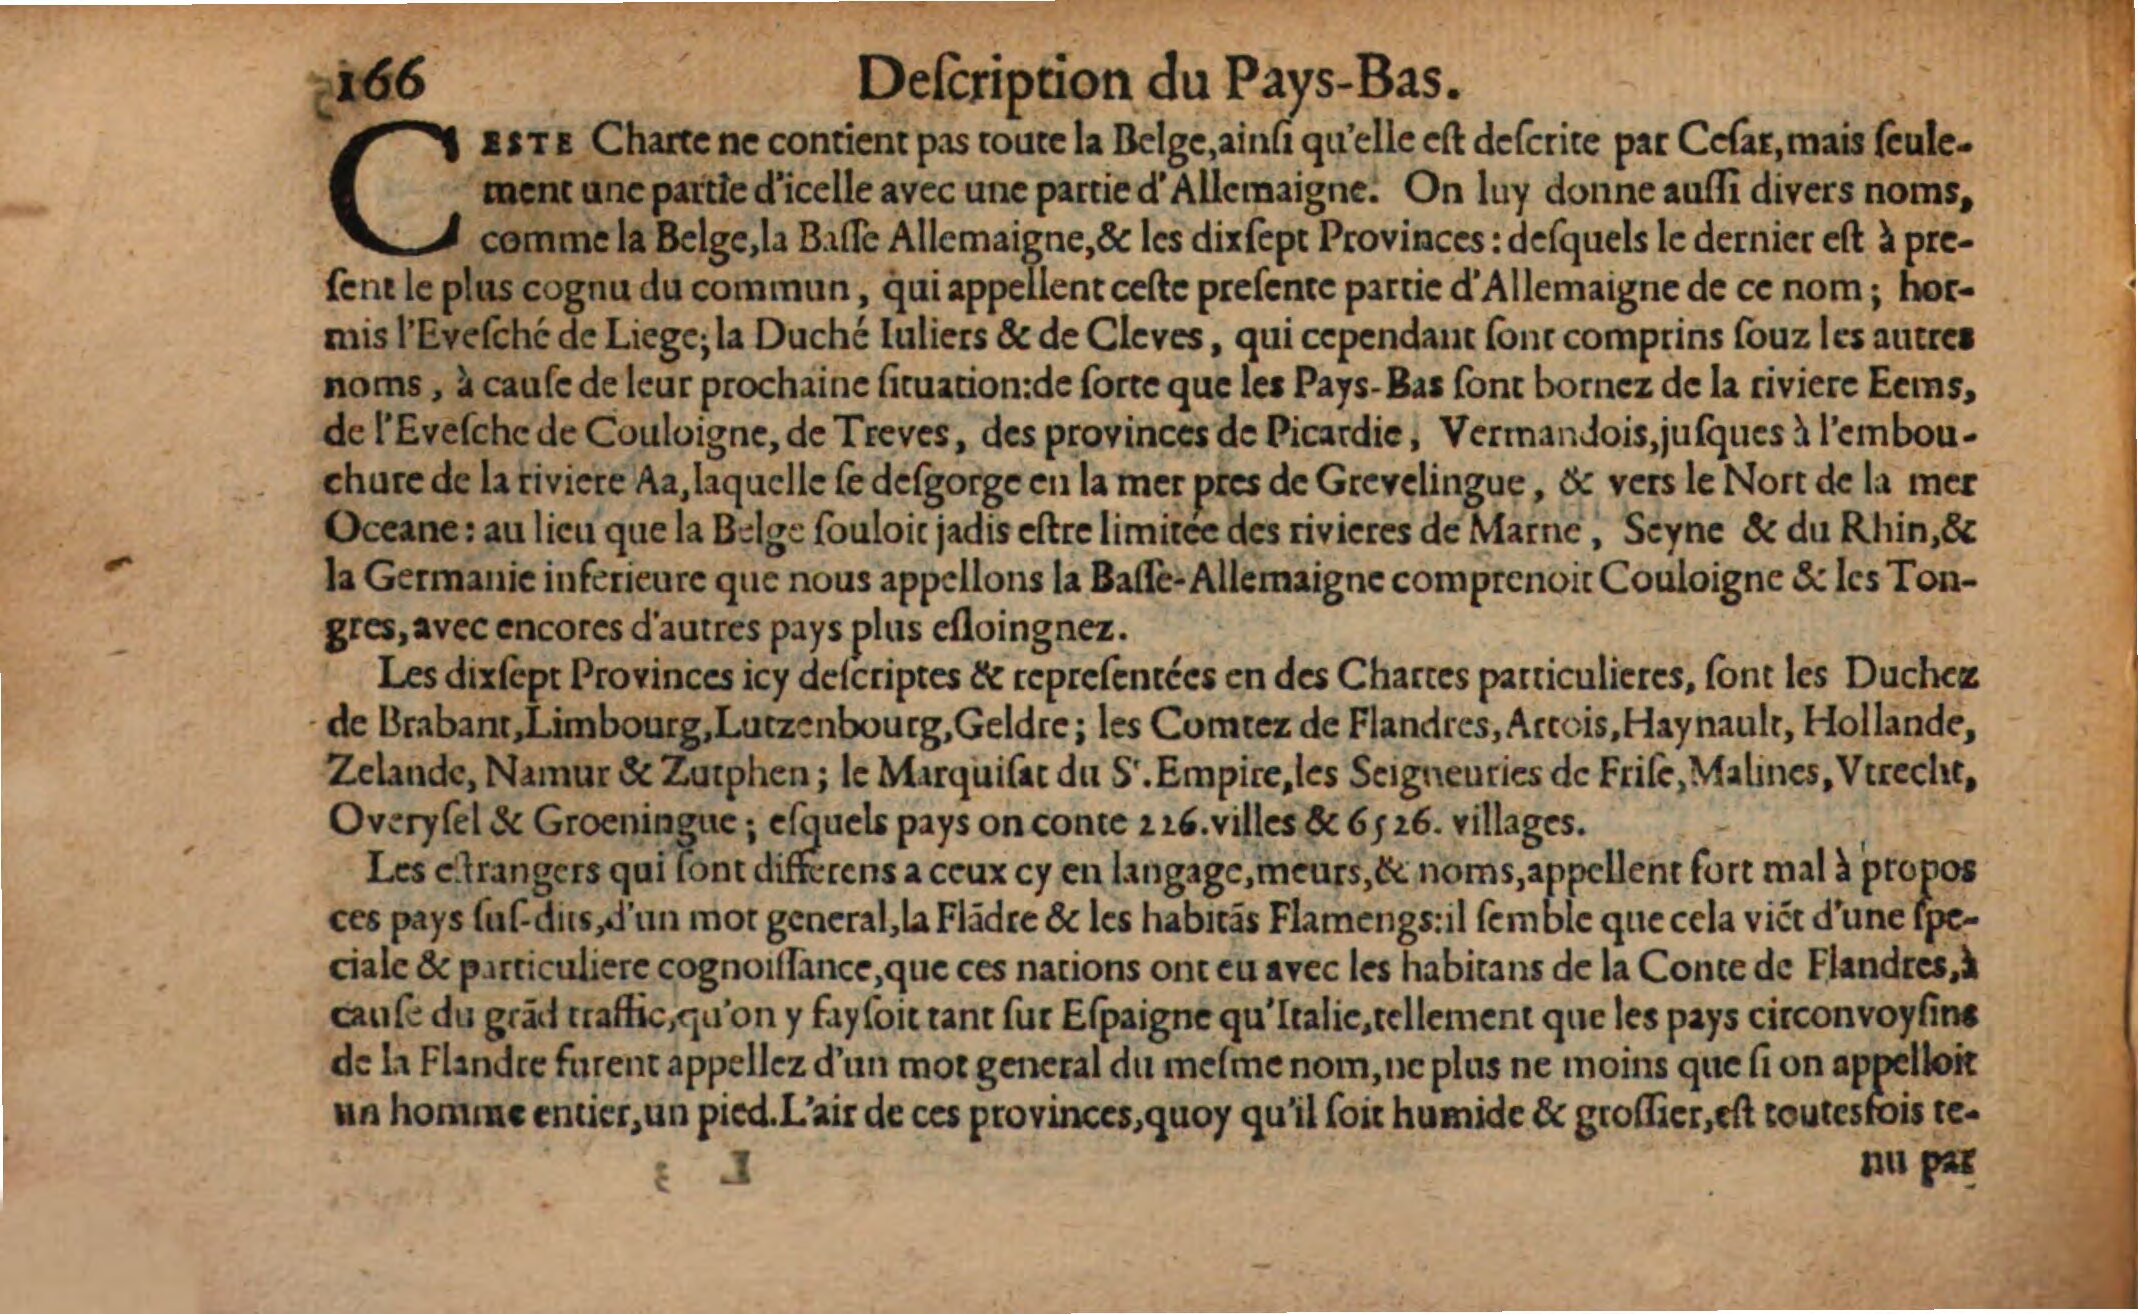 166 Deſcription du Pays-Bas.
CESTE Charte ne contient pas toute la Belge,ainſi qu'elle eſt deſcrite par Ceſar,mais ſeule-
ment une partie d'icelle avec une partie d'Allemaigne. On luy donne auſſi divers noms,
comme la Belge,la Baſſe Allemaigne,& les dixſept Provinces : deſquels le dernier eſt à pre-
ſent le plus cognu du commun , qui appellent ceſte preſente partie d'Allemaigne de ce nom ; hor-
mis l'Eveſché de Liege; la Duché Iuliers & de Cleves , qui cependant ſont comprins ſouz les autres
noms , à cauſe de leur prochaine ſituation:de ſorte que les Pays-Bas ſont bornez de la riviere Eems,
de l'Eveſche de Couloigne, de Treves , des provinces de Picardie , Vermandois,juſques à l'embou-
chure de la riviere Aa,laquelle ſe deſgorge en la mer pres de Grevelingue , & vers le Nort de la mer
Oceane : au lieu que la Belge ſouloit jadis eſtre limitée des rivieres de Marne , Seyne & du Rhin,&
la Germanie inferieure que nous appellons la Baſſe-Allemaigne comprenoit Couloigne & les Ton-
gres,avec encores d'autres pays plus eſloingnez.
Les dixſept Provinces icy deſcriptes & repreſentées en des Chartes particulieres, ſont les Duchez
de Brabant,Limbourg,Lutzenbourg,Geldre ; les Comtez de Flandres,Artois,Haynault, Hollande,
Zelande, Namur & Zutphen ; le Marquiſat du Sᵗ.Empire,les Seigneuries de Friſe,Malines,Vtrecht,
Overyſel & Groeningue ; eſquels pays on conte 226.villes & 6526. villages.
Les eſtrangers qui ſont differens a ceux cy en langage,meurs,& noms,appellent fort mal à propos
ces pays ſuſ-dits,d'un mot general,la Flādre & les habitās Flamengs:il ſemble que cela viēt d'une ſpe-
ciale & particuliere cognoiſſance,que ces nations ont eu avec les habitans de la Conte de Flandres,à
cauſe du grād traffic,qu'on y fayſoit tant ſur Eſpaigne qu'Italie,tellement que les pays circonvoyſins
de la Flandre furent appellez d'un mot general du meſme nom,ne plus ne moins que ſi on appelloit
un homme entier,un pied.L'air de ces provinces,quoy qu'il ſoit humide & groſſier,eſt toutesfois te-
L 3 nu par